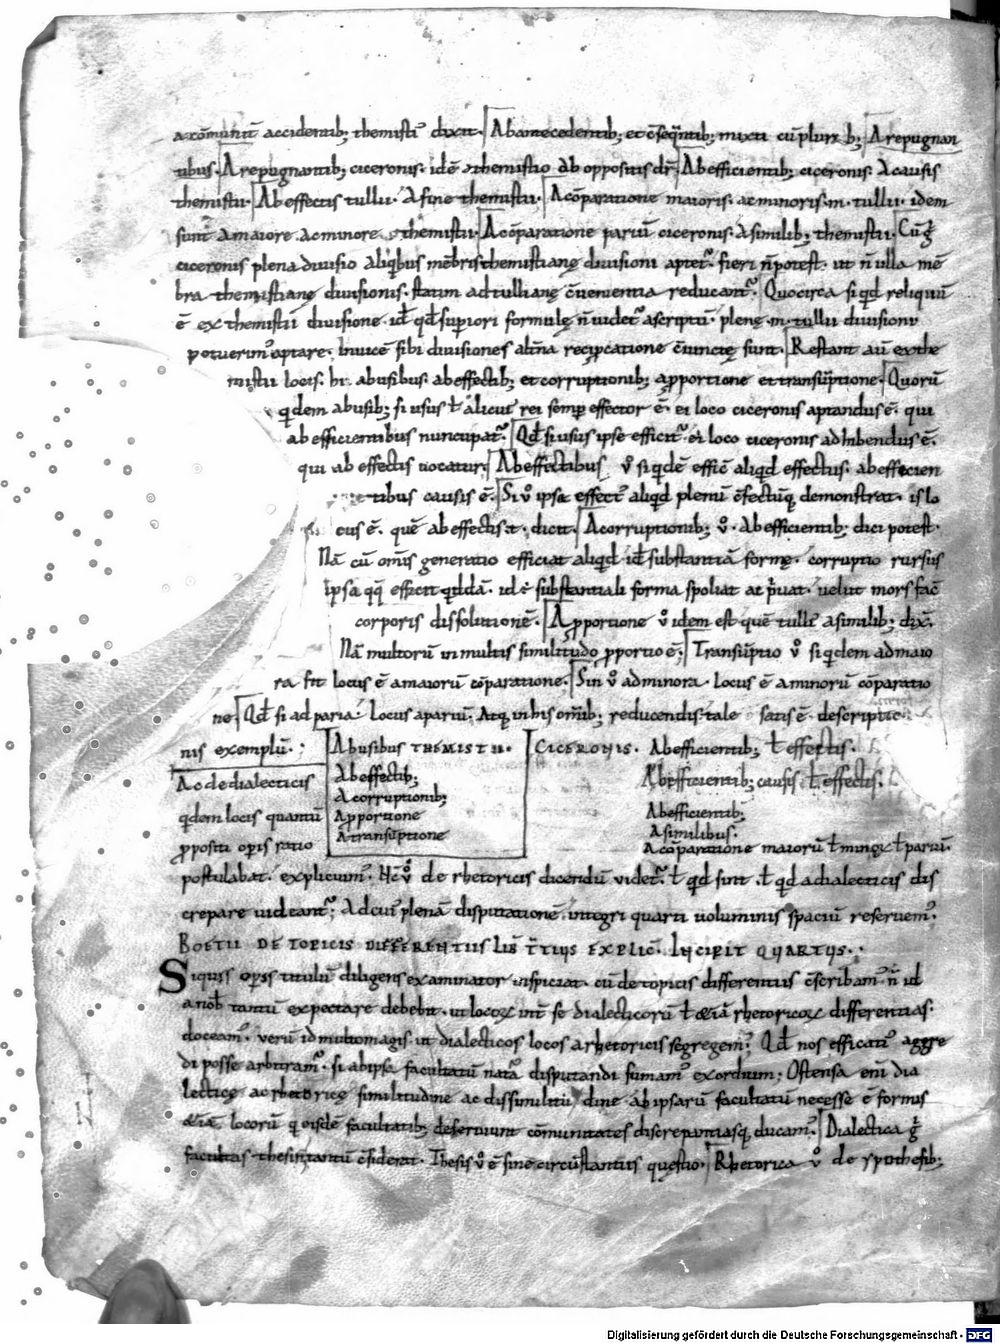 a cōmunit͛ accidentib; themisti᷒ dixit. Ab antecedentib; et c̄seq̄ntib; mixti cū plurib; A repugnan
tibus. A repugnantib; ciceronis. idē themistio ab oppositis dr̄. Ab efficientib; ciceronis. A causis
themistii. Ab effectis tullii. A fine themistii. A cōparatione maioris. ac minoris. m. tullii. idem
sunt A maiore. ac minore. themistii. A cōparatione pariū ciceronis. A similib; themistii. Cū g̊
ciceronis plena diuisio aliq̇bus mēbris themistianę diuisioni aptet᷒. fieri n̄ potest. ut n̄ ulla mē
bra themistianę diuisionis. statim ad tullianę c̄uenientia reducant᷒. Quocirca siqd reliquū
ē ex themistii diuisione. id qd supiori formulę n̄ uidet᷒ ascriptū. plenę. m. tullii diuisioni
potuerim᷒ aptare. Inuicē sibi diuisiones alt̄na recipcatione c̄iunctę sunt. Restant aū ex the
mistii locis. hi. ab usibus. ab effectib; et corruptionib; a pportione et transūptione. Quorū
q̇dem ab usib; si usus ł alicui rei semp effector ē. ei loco ciceronis aptandus ē. qui
ab efficientibus nuncupat᷒. Qd si usus ipse efficit᷒. ei loco ciceronis adhibendus ē.
qui ab effectis uocatur. Ab effectibus v̊ siq̇dē efficē aliqd effectus. ab efficien
tibus causis ē. Si v̊ ipsa effect᷒ aliqd plenū c̄fectūq; demonstrat. is lo
cus ē. quē ab effectis .t. dicit. A corruptionib; v̊. Ab efficientib; dici potest.
Nā cū omīs generatio efficiat aliqd id substantiā formę. corruptio rursus
ipsa qq̄ efficit q̇ddā. id ē substantiali forma spoliat at p̄uat. uelut mors fac̄
corporis dissolutionē. A pportione v̊ idem est quē tulli᷒ a similib; dix̄.
Nā multorū in multis similitudo pportio ē; Transūptio v̊ siq̇dem ad maio
ra fit locus ē a maiorū cōparatione. Sin v̊ ad minora. locus ē a minorū cōparatio
ne. Qd si ad paria. locus a pariū. Atq; in his omīb; reducendis tale satis ē. descriptio
nis exemplū.;
Ab usibus THEMISTII. CICERONIS. Ab efficientib; ł effectis.
Ac de dialecticis
Ab effectib; Ab efficientib; causis ł effectis.
A corruptionib;
q̇dem locis quantū
A pportione Ab efficientib;
A transūptione A similibus.
ppositi opis ratio
A cōparatione maiorū ł minoꝝ ł pariū.
postulabat. explicuim᷒. Nc̄ v̊ de rhetoricis dicendū uidet᷒. ł qd sint. ł qd a dialecticis dis
crepare uideant᷒; Ad cui᷒ plenā disputationē. integri quarti uoluminis spaciū reseruem᷒.
BOETII DE TOPICIS DIFFERENTIIS LIB̄ T̄TIUS EXPLIC̄. INCIPIT QUARTUS.
Siquis opis titulū diligens examinator inspiciat. cū de topicis differentiis c̄scribam᷒. n̄ id
a nob tantū expectare debebit. ut locoꝝ int̄ se dialecticorū ł &iā rhetoricoꝝ differentias.
doceam᷒. verū id multo magis. ut dialecticos locos a rhetoricis segregem᷒; Qd nos efficati᷒ aggre
di posse arbitram᷒. si ab ipsa facultatū nat᷒a disputandi sumam᷒ exordium; Ostensa enī dia
lecticę ac rhetoricę similitudine ac dissimilitudine ab ipsarū facultatū necesse ē formis
&iā locorū q̇ eisdē facultatib; deseruiunt cōmunitates discrepantiasq; ducam᷒. Dialectica g̊
facultas thesin tantū c̄siderat. Thesis v̊ ē sine circūstantiis questio. Rhetorica v̊ de ypothesib;
Digitalisierung gefördert durch die Deutsche Forschungsgemeinschaft - DFG